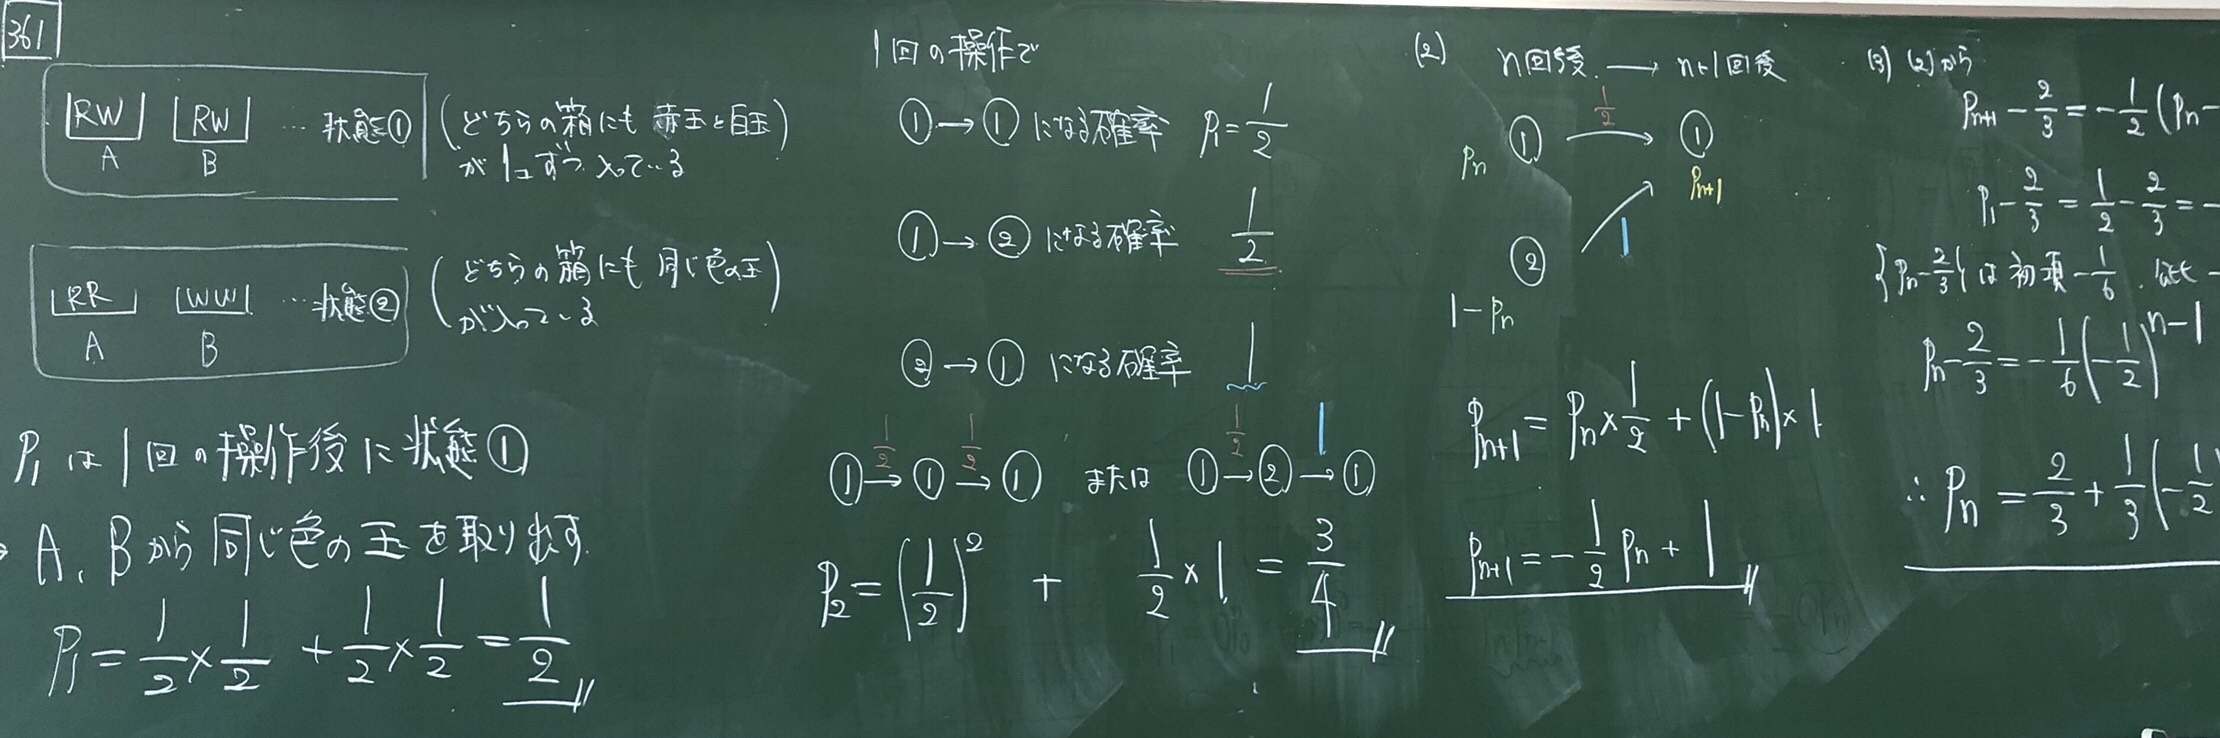 361
RW RW … 状態① (どちらの箱にも 赤玉と白玉
A B が1コずつ 入っている)
RR WW … 状態② (どちらの箱にも 同じ色の玉
A B が入っている)
P₁ は 1回の操作後に状態①
A、Bから同じ色の玉を取り出す
P₁ = 1/2 × 1/2 + 1/2 × 1/2 = 1/2
1回の操作で
① → ① になる確率 P₁ = 1/2
① → ② になる確率 1/2
② → ① になる確率 1
① →(1/2) ① →(1/2) ① または ① →(1/2) ② →(1) ①
P₂ = (1/2)² + 1/2 × 1 = 3/4
(2) n回後 → n+1回後
Pn ① →(1/2) ① Pn+1
1-Pn ② →(1)
Pn+1 = Pn × 1/2 + (1-Pn) × 1
Pn+1 = -1/2 Pn + 1
(3) (2)から
Pn+1 - 2/3 = -1/2 (Pn -
P₁ - 2/3 = 1/2 - 2/3 = -
{Pn - 2/3} は 初項 -1/6、公比 -
Pn - 2/3 = -1/6 (-1/2)^(n-1)
∴ Pn = 2/3 + 1/3 (-1/2)